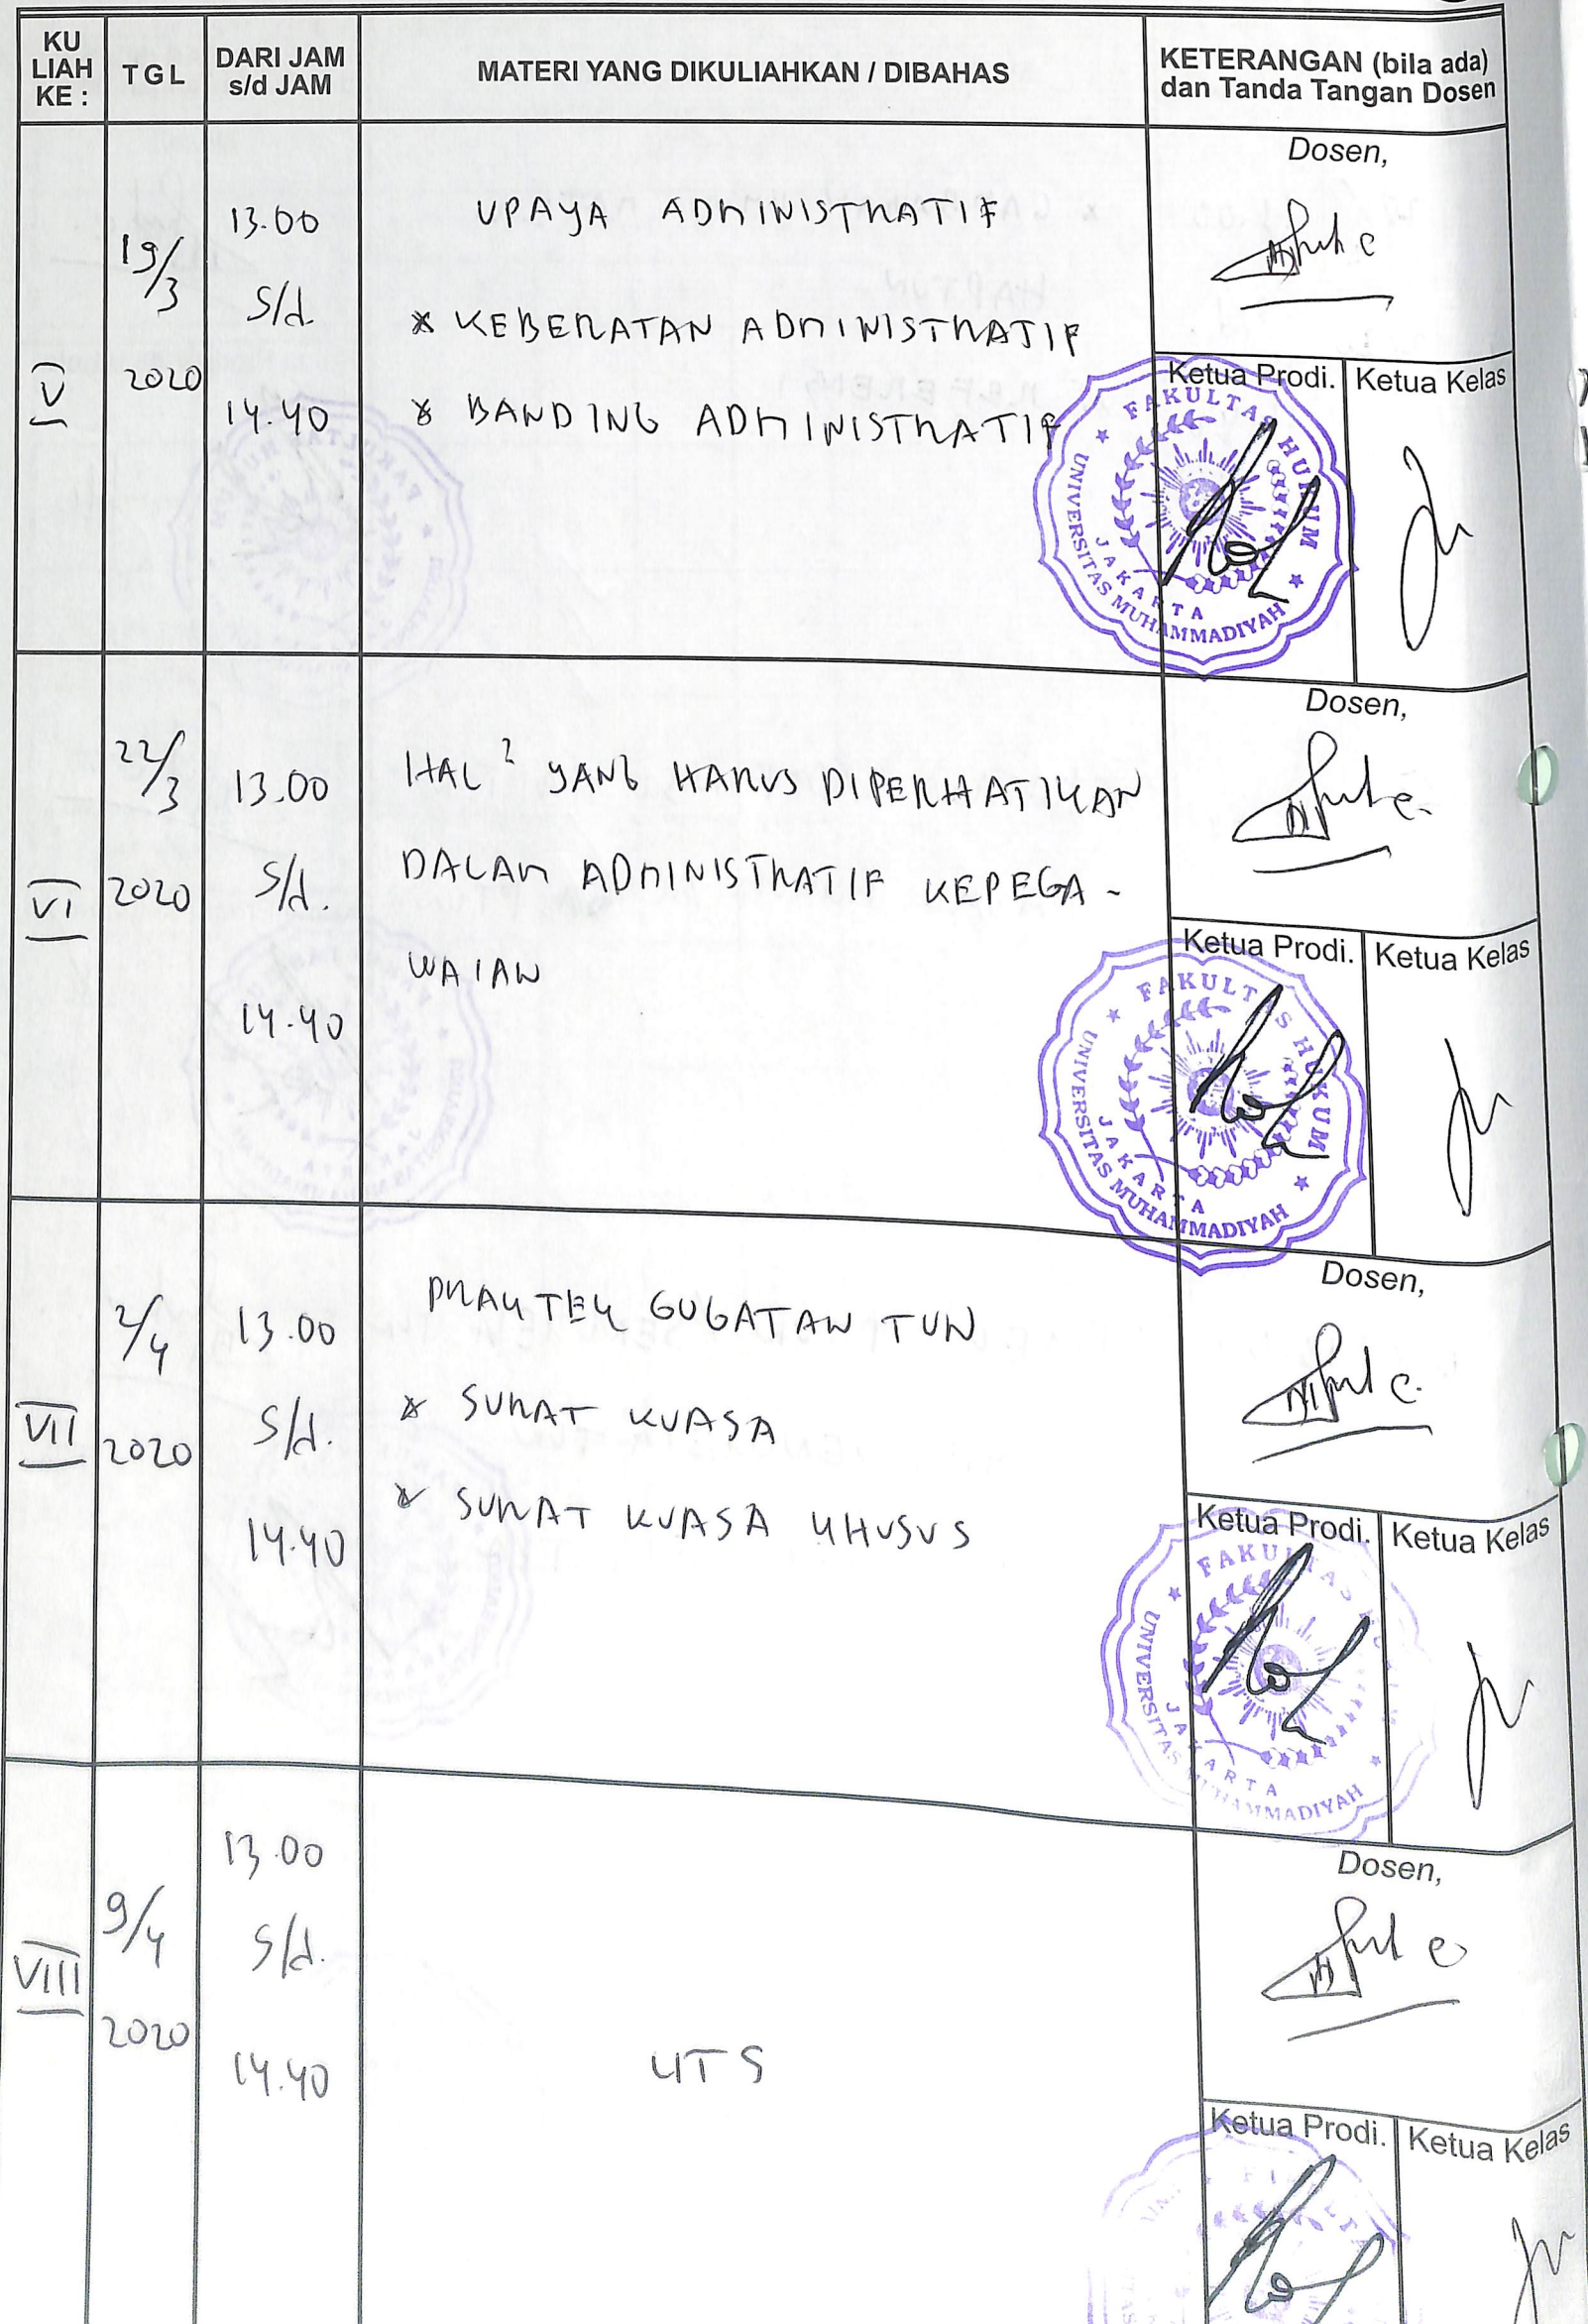 KU LIAH KE :
TGL
DARI JAM s/d JAM
MATERI YANG DIKULIAHKAN / DIBAHAS
KETERANGAN (bila ada) dan Tanda Tangan Dosen
V
19/3
2020
13.00
s/d
14.40
UPAYA ADMINISTRATIF
* KEBERATAN ADMINISTRATIF
* BANDING ADMINISTRATIF
Dosen,
Ketua Prodi.
Ketua Kelas
FAKULTAS HUKUM
UNIVERSITAS MUHAMMADIYAH
JAKARTA
VI
22/3
2020
13.00
s/d.
14.40
HAL² YANG HARUS DIPERHATIKAN
DALAM ADMINISTRATIF KEPEGA-
WAIAN
Dosen,
Ketua Prodi.
Ketua Kelas
FAKULTAS HUKUM
UNIVERSITAS MUHAMMADIYAH
JAKARTA
VII
2/4
2020
13.00
s/d.
14.40
PRAKTEK GUGATAN TUN
* SURAT KUASA
* SURAT KUASA KHUSUS
Dosen,
Ketua Prodi.
Ketua Kelas
UNIVERSITAS MUHAMMADIYAH
JAKARTA
VIII
9/4
2020
13.00
s/d.
14.40
UTS
Dosen,
Ketua Prodi.
Ketua Kelas